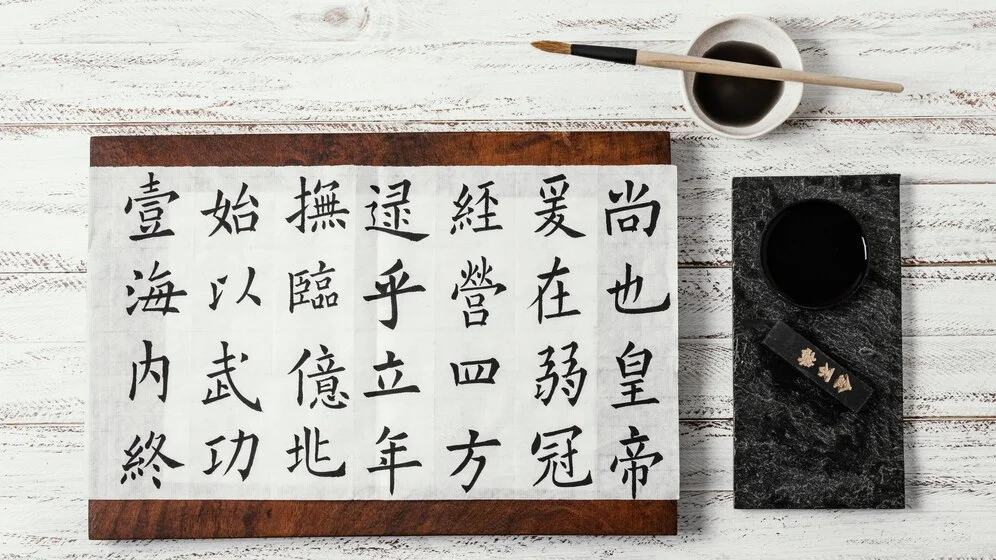 尚也皇帝
爰在弱冠
經營四方
逯乎立年
撫臨億兆
始以武功
壹海内終
金不換